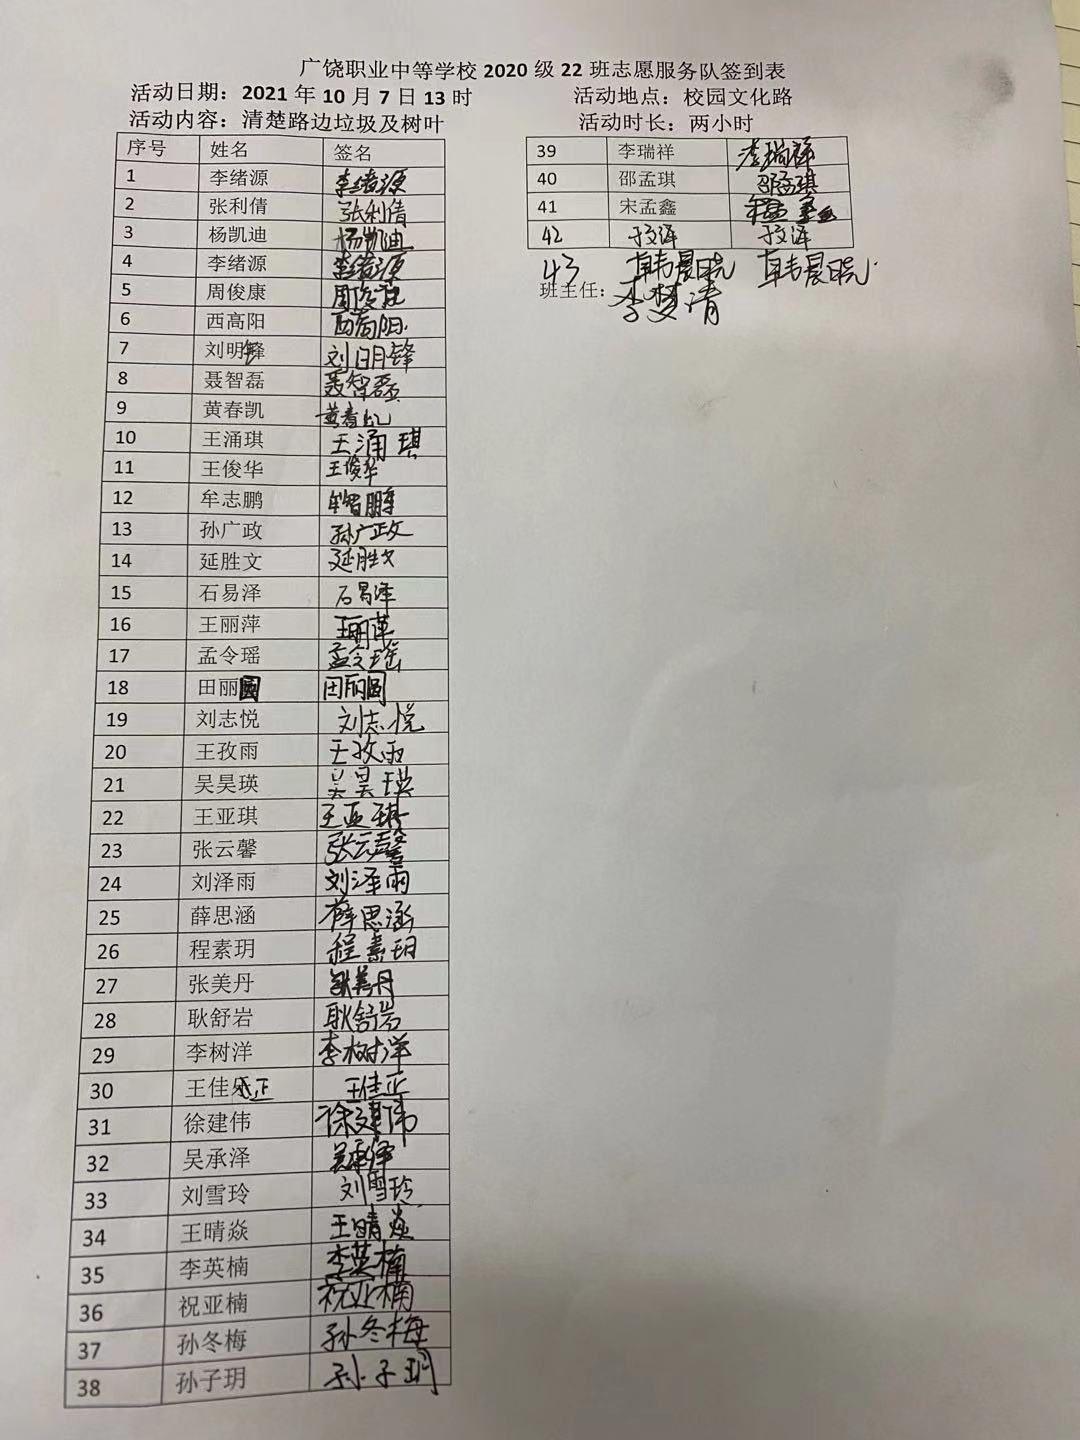 广饶职业中等学校 2020 级 22 班志愿服务队签到表
活动日期：2021 年 10 月 7 日 13 时 活动地点：校园文化路
活动内容：清楚路边垃圾及树叶 活动时长：两小时
序号 姓名 签名
1 李绪源 李绪源
2 张利倩 张利倩
3 杨凯迪 杨凯迪
4 李绪源 李绪源
5 周俊康 周俊康
6 西高阳 西高阳
7 刘明锋 刘明锋
8 聂智磊 聂智磊
9 黄春凯 黄春凯
10 王涌琪 王涌琪
11 王俊华 王俊华
12 牟志鹏 牟智鹏
13 孙广政 孙广政
14 延胜文 延胜文
15 石易泽 石易泽
16 王丽萍 王丽萍
17 孟令瑶 孟令瑶
18 田丽圆 田丽圆
19 刘志悦 刘志悦
20 王孜雨 王孜雨
21 吴昊瑛 吴昊瑛
22 王亚琪 王亚琪
23 张云馨 张云馨
24 刘泽雨 刘泽雨
25 薛思涵 薛思涵
26 程素玥 程素玥
27 张美丹 张美丹
28 耿舒岩 耿舒岩
29 李树洋 李树洋
30 王佳正 王佳正
31 徐建伟 徐建伟
32 吴承泽 吴承泽
33 刘雪玲 刘雪玲
34 王晴焱 王晴焱
35 李英楠 李英楠
36 祝亚楠 祝亚楠
37 孙冬梅 孙冬梅
38 孙子玥 孙子玥
39 李瑞祥 李瑞祥
40 邵孟琪 邵孟琪
41 宋孟鑫
42 于文泽 于文泽
43 韩晨晓 韩晨晓
班主任：李梦清